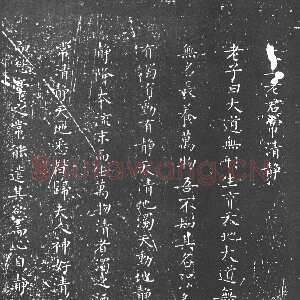 老君常清静
老子曰大道無形生育天地大道無
無名長養萬物吾不知其名
有濁有動有靜天清地濁天動地靜
降本流末而生萬物清者濁之源
常清靜天地悉皆歸夫人神好清
牽之常能遣其慾而心自靜
Shufawang.CN